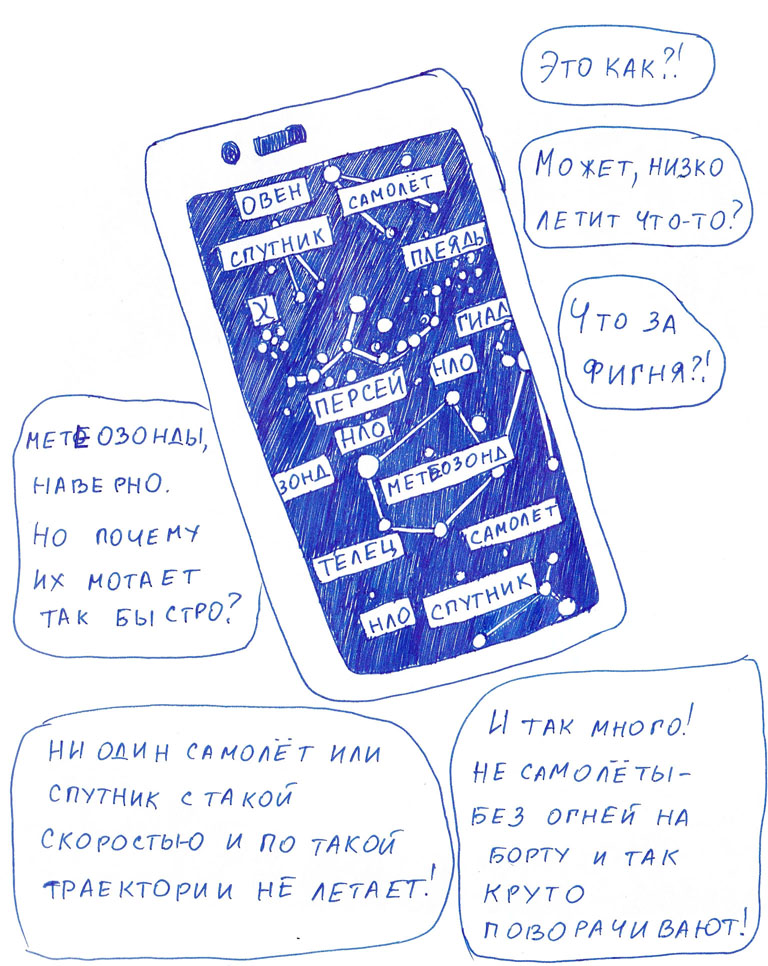 Это как?!
Может, низко
летит что-то?
Что за
фигня?!
ОВЕН
САМОЛЁТ
СПУТНИК
ПЛЕЯДЫ
χ
ГИАД
НЛО
ПЕРСЕЙ
НЛО
ЗОНД
МЕТЕОЗОНД
САМОЛЕТ
ТЕЛЕЦ
СПУТНИК
НЛО
МЕТЕОЗОНДЫ,
НАВЕРНО.
НО ПОЧЕМУ
ИХ МОТАЕТ
ТАК БЫСТРО?
НИ ОДИН САМОЛЁТ ИЛИ
СПУТНИК С ТАКОЙ
СКОРОСТЬЮ И ПО ТАКОЙ
ТРАЕКТОРИИ НЕ ЛЕТАЕТ!
И ТАК МНОГО!
НЕ САМОЛЁТЫ-
БЕЗ ОГНЕЙ НА
БОРТУ И ТАК
КРУТО
ПОВОРАЧИВАЮТ!